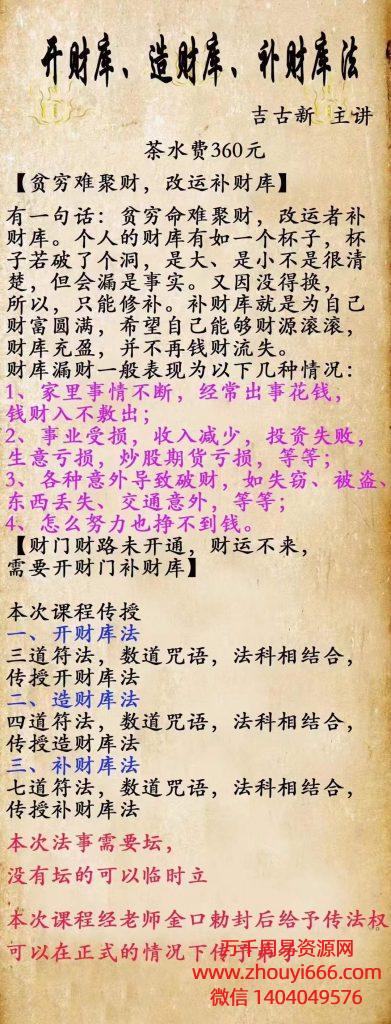 开财库、造财库、补财库法
吉古新 主讲
茶水费360元
【贫穷难聚财，改运补财库】
有一句话：贫穷命难聚财，改运者补
财库。个人的财库有如一个杯子，杯
子若破了个洞，是大、是小不是很清
楚，但会漏是事实。又因没得换，
所以，只能修补。补财库就是为自己
财富圆满，希望自己能够财源滚滚，
财库充盈，并不再钱财流失。
财库漏财一般表现为以下几种情况：
1、家里事情不断，经常出事花钱，
钱财入不敷出；
2、事业受损，收入减少，投资失败，
生意亏损，炒股期货亏损，等等；
3、各种意外导致破财，如失窃、被盗、
东西丢失、交通意外，等等；
4、怎么努力也挣不到钱。
【财门财路未开通，财运不来，
需要开财门补财库】
本次课程传授
一、开财库法
三道符法，数道咒语，法科相结合，
传授开财库法
二、造财库法
四道符法，数道咒语，法科相结合，
传授造财库法
三、补财库法
七道符法，数道咒语，法科相结合，
传授补财库法
本次法事需要坛，
没有坛的可以临时立
本次课程经老师金口勅封后给予传法权
可以在正式的情况下传予弟子
万千周易资源网
www.zhouyi666.com
微信 1404049576